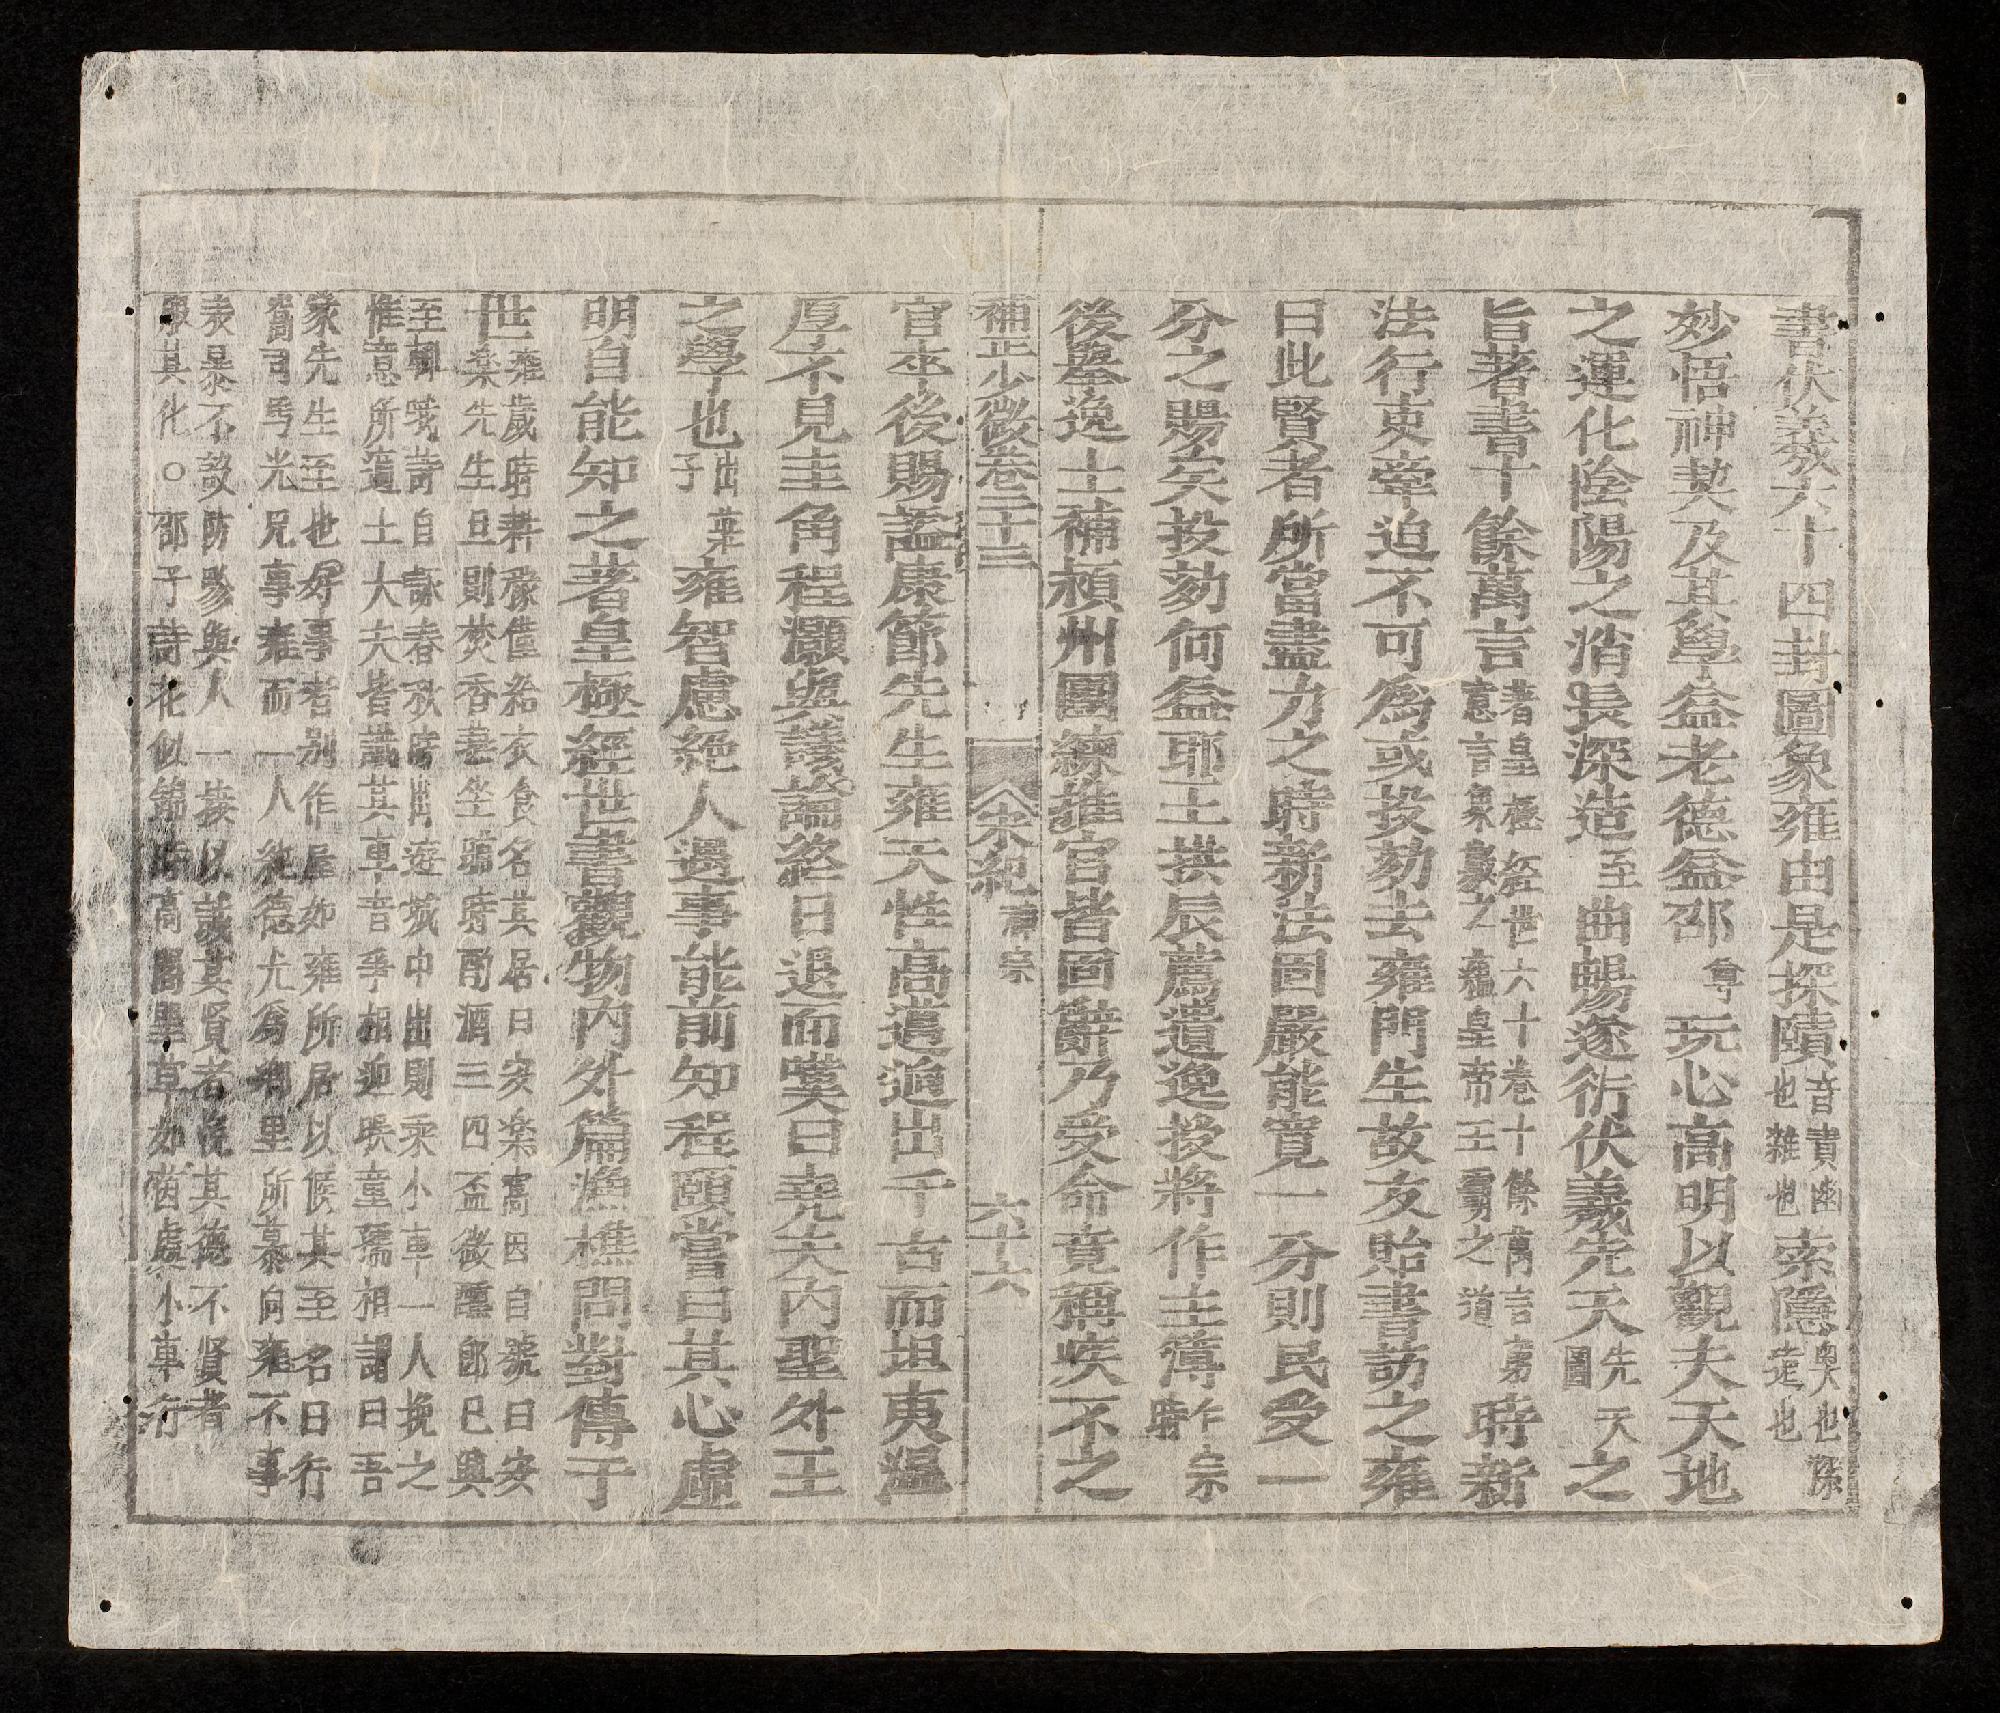 書伏羲六十四封圖象雍由是探賾音責幽奧也深也雜也索隱遠也
妙悟神契及其學益老德益邵尊玩心高明以觀夫天地
之運化陰陽之消長深造至曲暢遂衍伏羲先天先天圖之
旨著書十餘萬言著皇極經世六十卷十餘萬言窮意言象數之蘊皇帝王霸之道時新
法行吏牽迫不可為或投劾去雍門生故友貽書訪之雍
曰此賢者所當盡力之時新法固嚴能寬一分則民受一
分之賜矣投劾何益耶王拱辰薦遺逸授將作主簿仁宗時
後舉逸士補潁州團練推官皆固辭乃受命竟稱疾不之
補正少微卷二十三 宋紀 神宗 六十六
官卒後賜謚康節先生雍天性高邁迥出千古而坦夷溫
厚不見圭角程灝與議論終日退而嘆曰堯夫內聖外王
之學也出莊子雍智慮絶人遇事能前知程頤嘗曰其心虛
明自能知之著皇極經世書觀物內外篇漁樵問對傳于
世雍歲時耕稼僅給衣食名其居曰安楽窩因自號曰安
楽先生旦則焚香燕坐晡時酌酒三四盃微醺即已興
至輒哦詩自詠春秋時出遊城中出則乘小車一人挽之
惟意所適士大夫皆識其車音爭相迎睺童孺相謂曰吾
家先生至也好事者別作屋如雍所居以候其至名曰行
窩司馬光兄事雍而二人純德尤為鄉里所慕向雍不事
表暴不設防畛與人一接以誠其賢者悅其德不賢者
服其化○邵子詩花似錦時高閣望草如茵處小車行